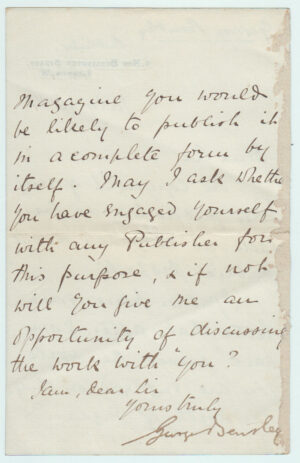 Magazine you would
be likely to publish it
in a complete form by
itself. May I ask whether
you have engaged yourself
with any Publisher for
this purpose, & if not
will you give me an
opportunity of discussing
the work with you?
I am, dear Sir
Yours truly
George Bentley